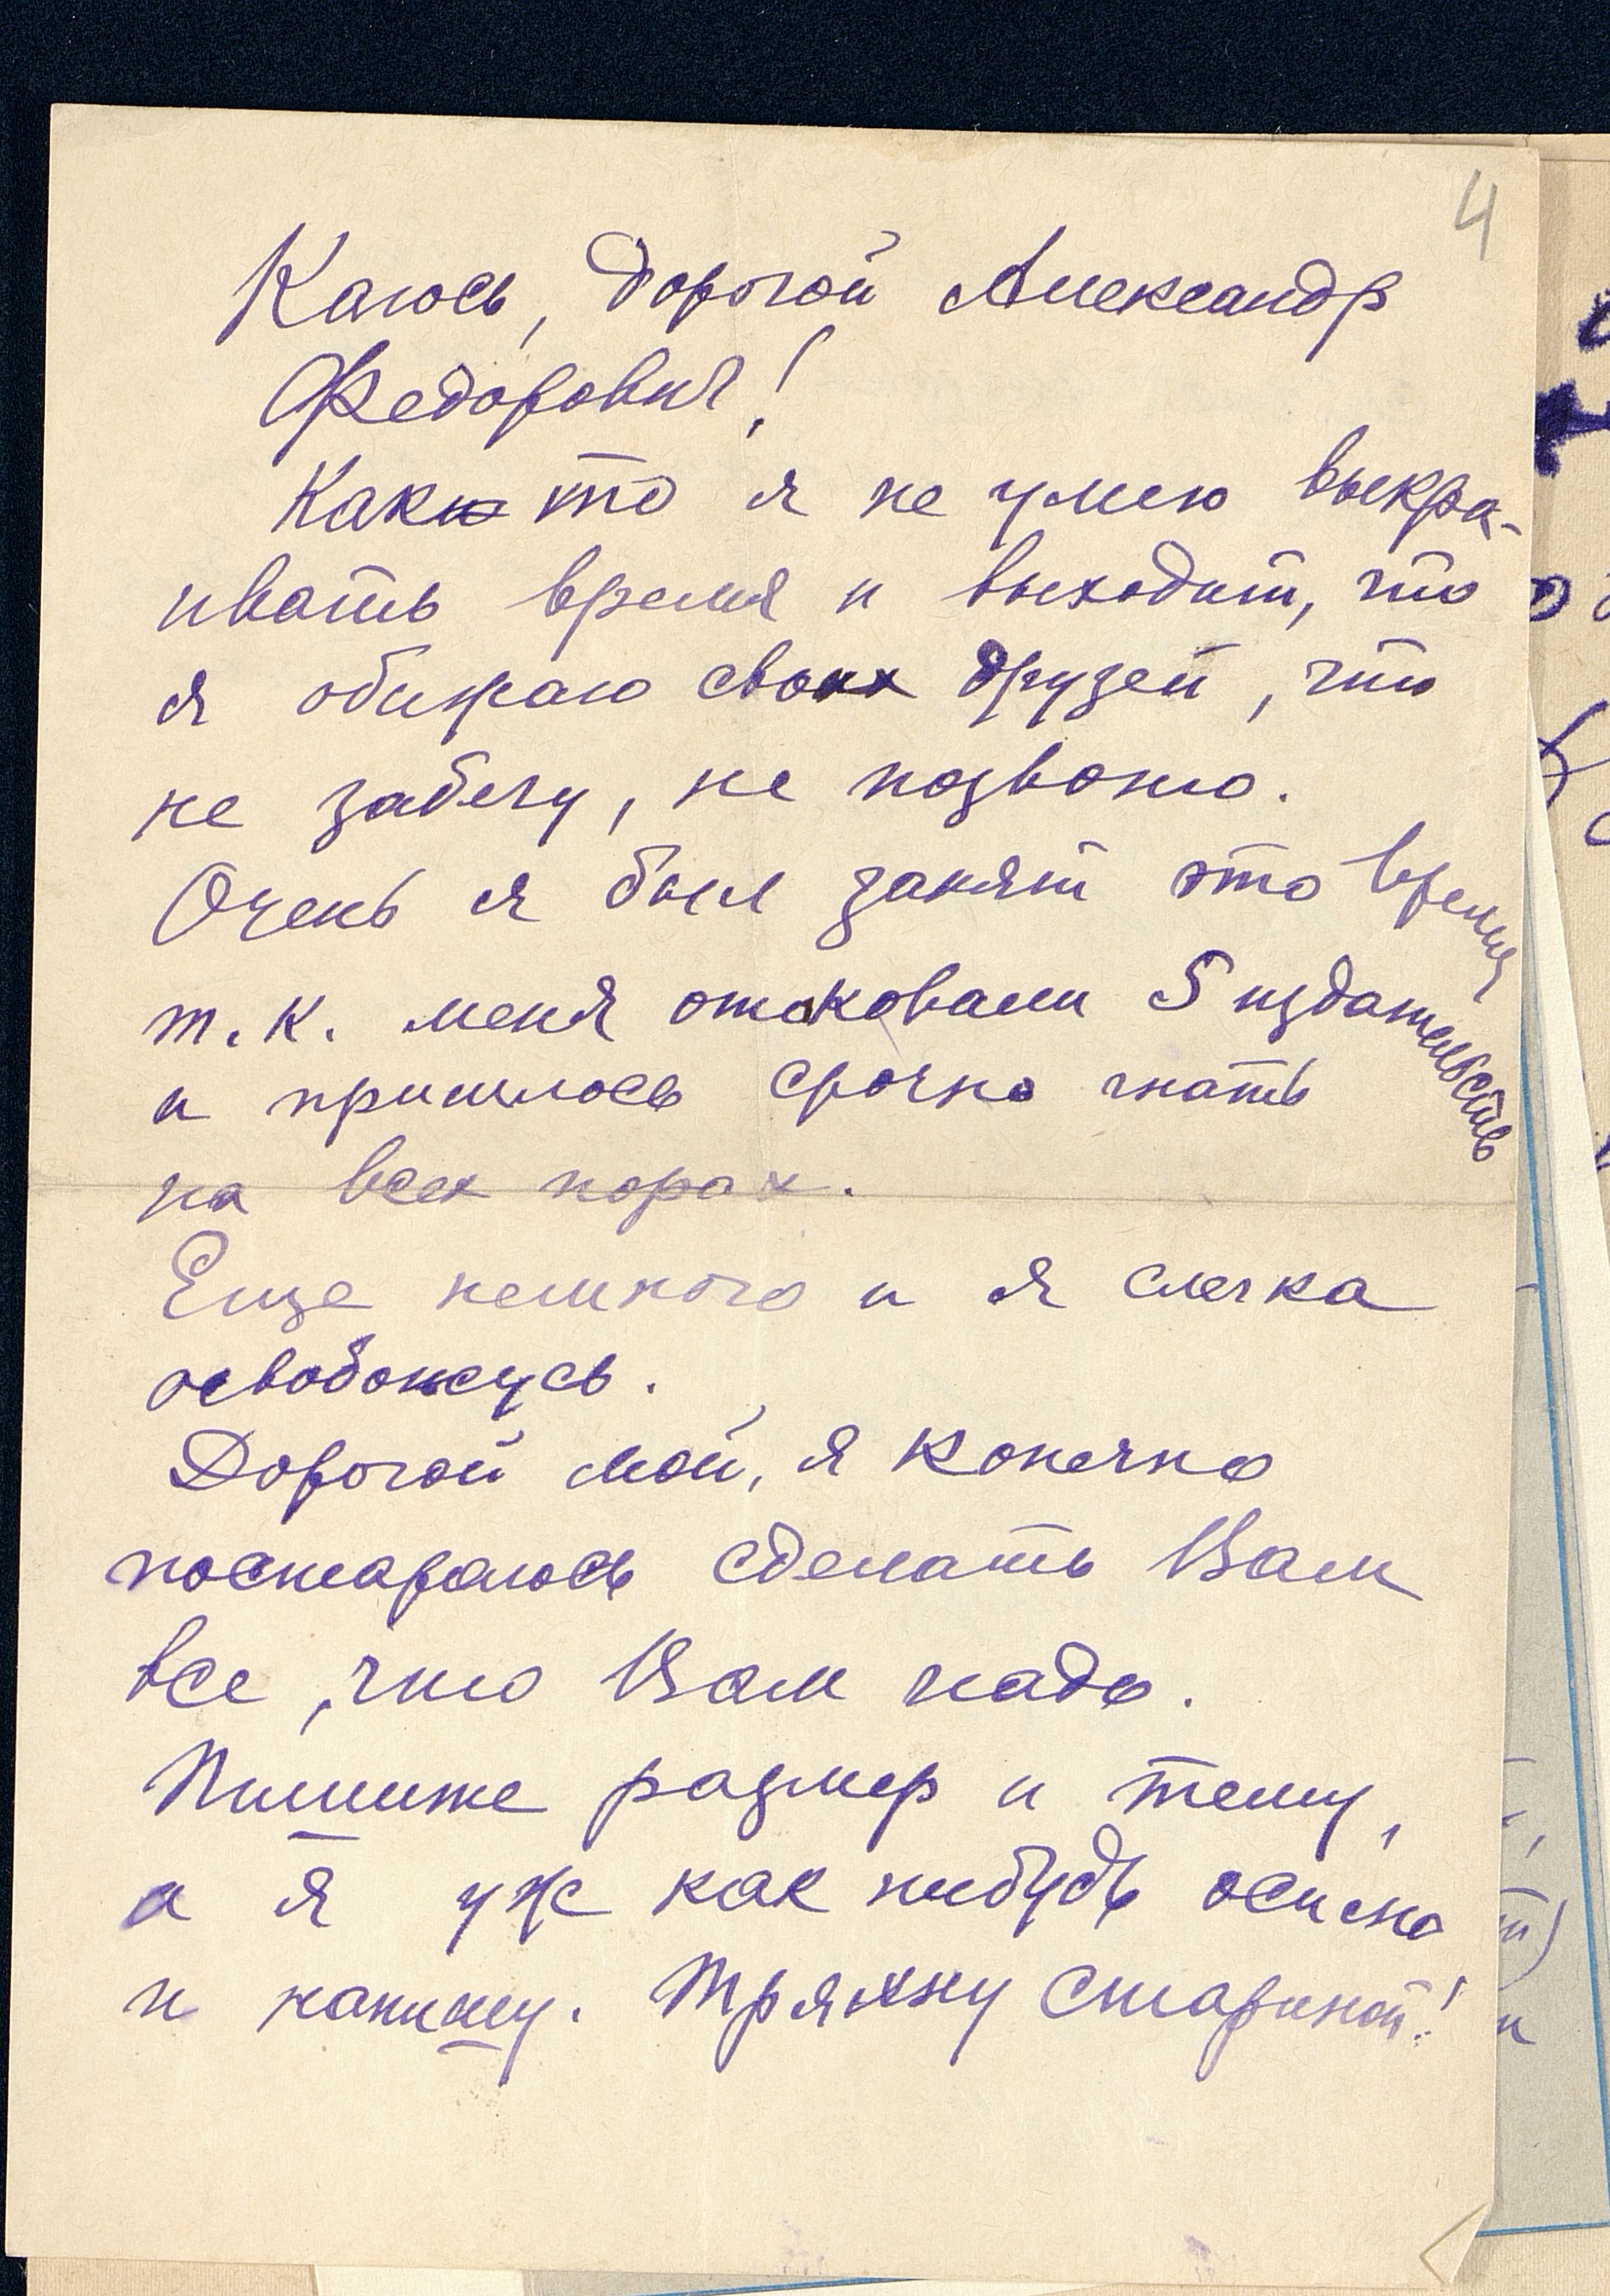 4
Каюсь, дорогой Александр
Федорович!
Как то я не умею выкра-
ивать время и выходит, что
я обижаю своих друзей, что
не забегу, не позвоню.
Очень я был занят это время
т.к. меня атаковали 5 издательств
и пришлось срочно гнать
на всех порах.
Еще немного и я слегка
освобожусь.
Дорогой мой, я конечно
постараюсь сделать Вам
все, что Вам надо.
Пишите размер и тему,
а я уж как нибудь осилю
и напишу. Тряхну стариной!